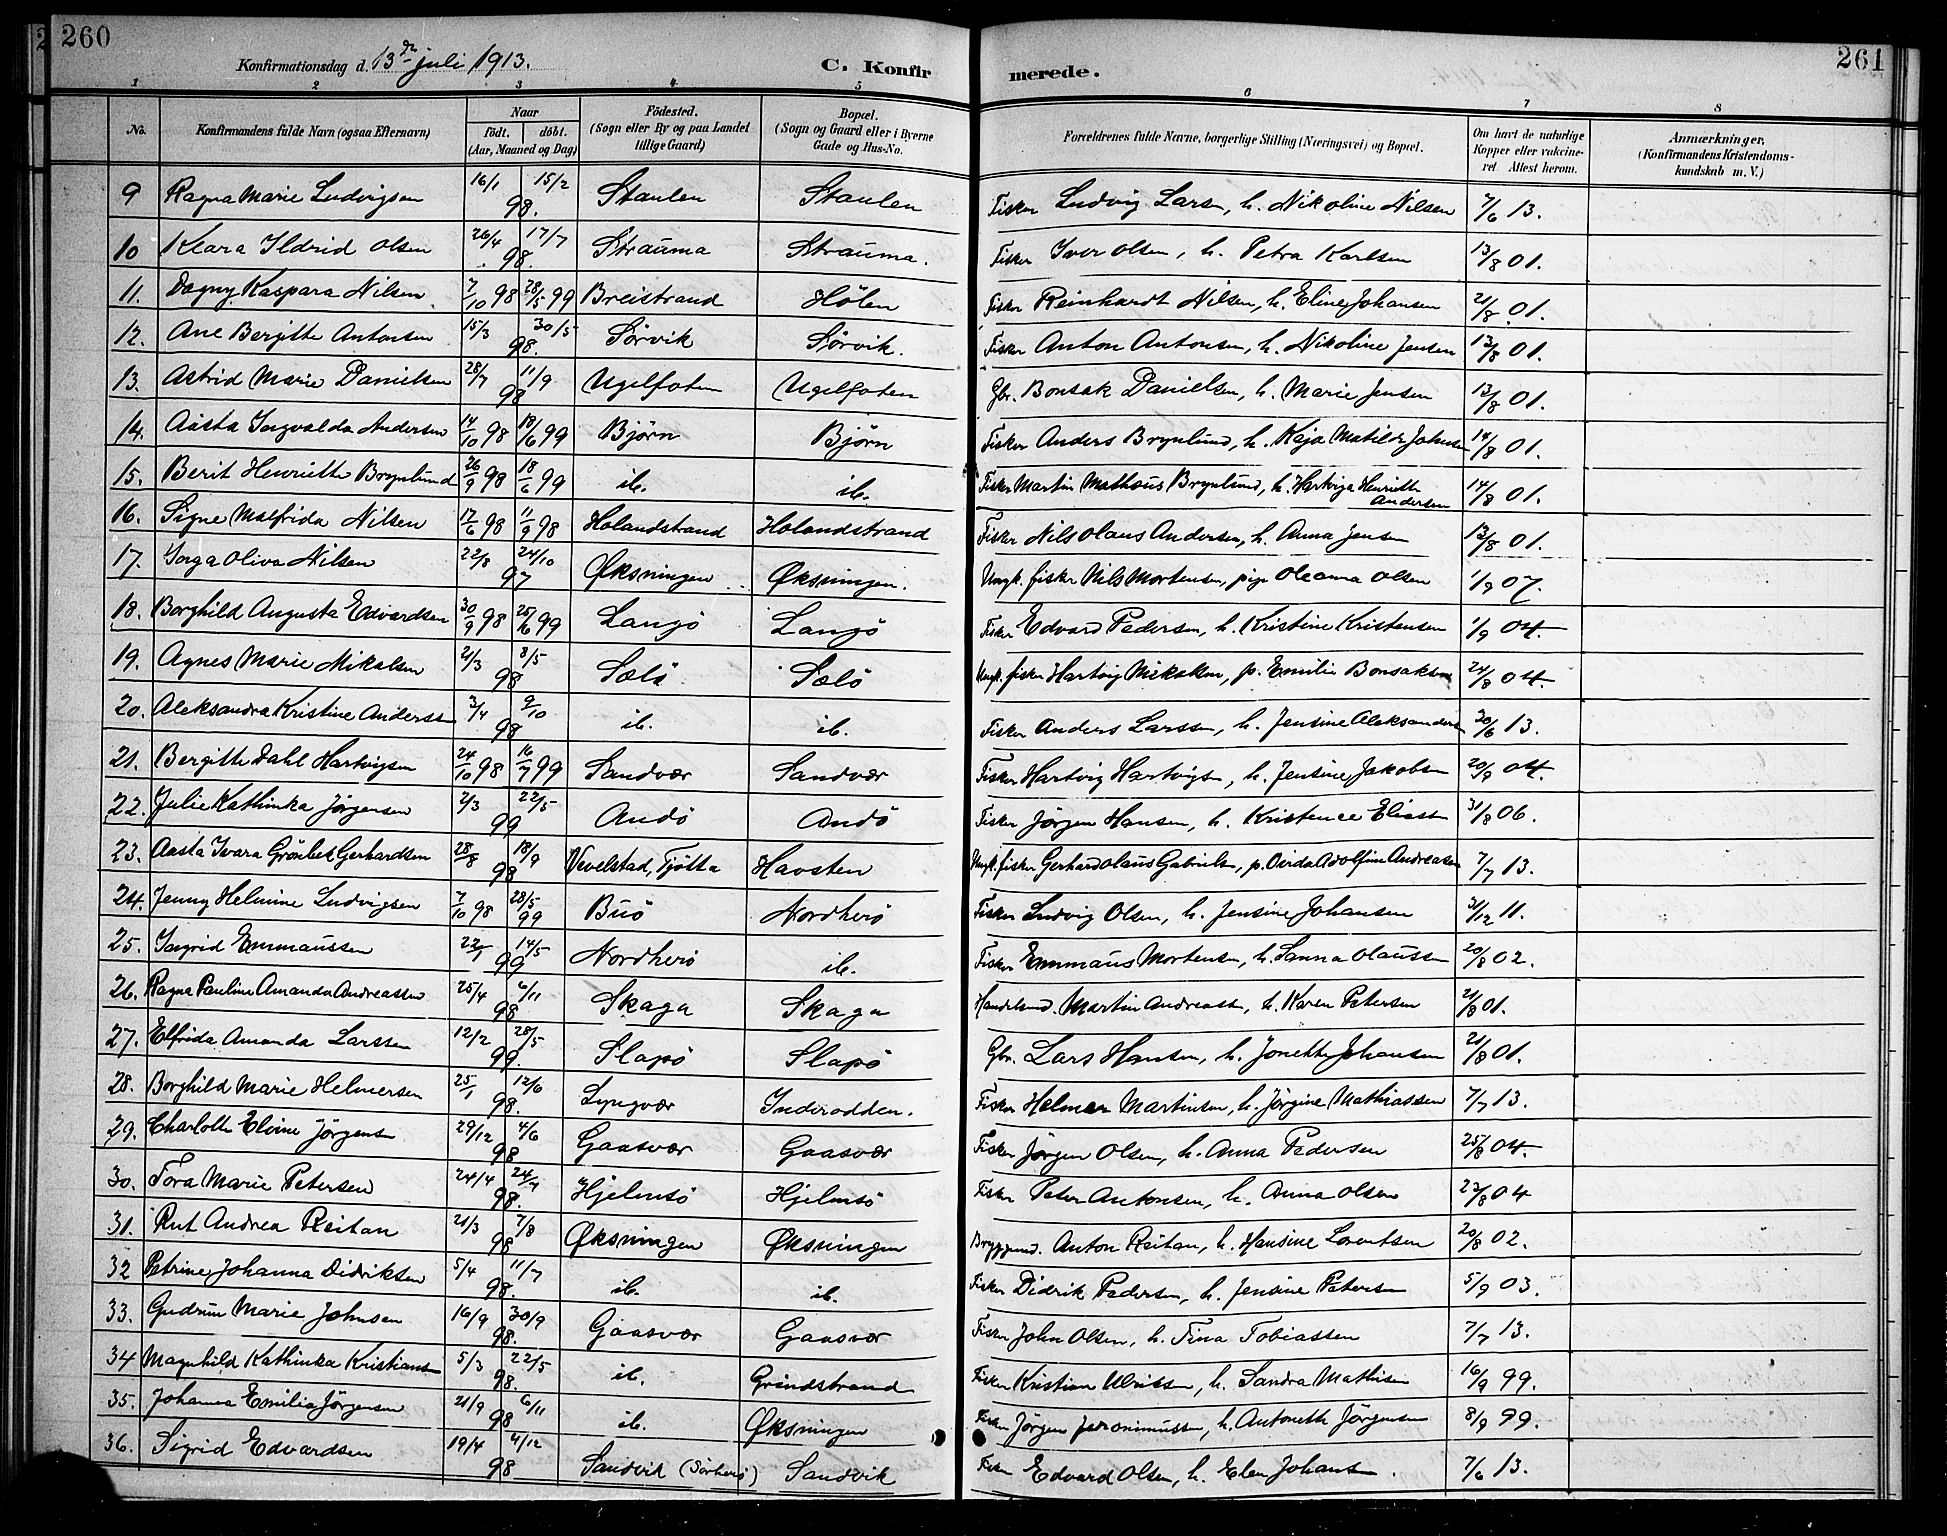 260
Konfirmationsdag d. 13de juli 1913. C. Konfir
merede. 261
1 2 3 4 5 6 7 8
No. Konfirmandens fulde Navn (ogsaa Efternavn) Naar født. døbt. (Aar, Maaned og Dag) Fødested. (Sogn eller By og paa Landet tillige Gaard) Bopæl. (Sogn og Gaard eller i Byerne Gade og Hus-No. Forældrenes fulde Navne, borgerlige Stilling (Næringsvei) og Bopæl. Om havt de naturlige Kopper eller vakcineret Attest herom. Anmærkninger, (Konfirmandens Kristendomskundskab m. V.)
9 Ragna Marie Ludvigsen 16/1 15/2 98. Staulen Staulen Fisker Ludvig Larsen, h. Nikoline Nilsen 7/6 13.
10 Klara Ildrid Olsen 26/4 17/7 98. Strauma Strauma. Fisker Iver Olsen, h. Petra Karlsen 13/8 01.
11. Dagny Kaspara Nilsen 7/10 98 28/5 99 Breistrand Hølen Fisker Reinhardt Nilsen, h. Eline Johansen 21/8 01.
12. Ane Bergitte Antonsen 15/3 30/5 98. Sørvik Sørvik. Fisker Anton Antonsen, h. Nikoline Jensen 13/8 01.
13. Astrid Marie Danielsen 28/7 11/9 98 Ugelfoten Ugelfoten Gbr. Bonsak Danielsen, h. Marie Jensen 13/8 01.
14. Aasta Ingvalda Andersen 14/10 98 18/6 99 Bjørn Bjørn Fisker Anders Brynlund, h. Kaja Matilde Johnsen 14/8 01.
15. Berit Henriette Brynlund 26/9 98 18/6 99 ib. ib. Fisker Martin Mathæus Brynlund, h. Hartviga Henriette Andersen 14/8 01.
16. Signe Malfrida Nilsen 17/6 98 11/9 98 Holandstrand Holandstrand Fisker Nils Olaus Andersen, h. Anna Jensen 13/8 01.
17. Inga Oliva Nilsen 22/8 24/10 97 Øksningen Øksningen. Ungk. fisker Nils Mortensen, pige Oleana Olsen 1/9 07.
18. Borghild Augusta Edvardsen 30/9 98 25/6 99 Langø Langø Fisker Edvard Pedersen, h. Kristine Kristensen 1/9 04.
19. Agnes Marie Mikalsen 21/3 8/5 98 Sælø Sælø Ungk. fisker Hartvig Mikalsen, p. Emilie Bonsaksen 24/8 04.
20. Aleksandra Kristine Andersen 3/4 9/10 98 ib. ib. Fisker Anders Larssen, h. Jensine Aleksandersen 30/6 13.
21. Bergitte Dahl Hartvigsen 24/10 98 16/7 99 Sandvær Sandvær Fisker Hartvig Hartvigsen, h. Jensine Jakobsen 20/9 04.
22. Julie Kathinka Jørgensen 2/3 22/5 99 Andø Andø Fisker Jørgen Hansen, h. Kristence Eliassen 31/8 06.
23. Aasta Ivara Grønbek Gerhardsen 28/8 18/9 98 Vevelstad, Tjøtta Havsten Ungk. fisker Gerhard Olaus Gabrielsen, p. Ovida Adolfine Andreasen 7/7 13.
24. Jenny Helmine Ludvigsen 7/10 98 28/5 99 Buø Nordherø Fisker Ludvig Olsen, h. Jensine Johansen 31/12 11.
25. Ingrid Emmaussen 22/1 14/5 99 Nordherø ib. Fisker Emmaus Mortensen, h. Sanna Olaussen 20/8 02.
26. Ragna Pauline Amanda Andreassen 25/4 6/11 98 Skaga Skaga Handelsmd. Martin Andreassen, h. Karen Petersen 21/8 01.
27. Elfrida Amanda Larssen 12/2 28/5 99. Slapø Slapø Gbr. Lars Hansen, h. Jonette Johansen 21/8 01.
28. Borghild Marie Helmersen 25/1 12/6 98. Lyngvær Inderodden. Fisker Helmer Martinsen, h. Jørgine Mathiassen 7/7 13.
29. Charlotte Elvine Jørgensen 29/12 4/6 98 Gaasvær Gaasvær Fisker Jørgen Olsen, h. Anna Pedersen 25/8 04.
30. Tora Marie Petersen 24/4 24/7 98. Hjelmsø Hjelmsø Fisker Peter Antonsen, h. Anna Olsen 23/8 04
31. Rut Andrea Reitan 21/3 7/8 98 Øksningen Øksningen Bryggemd. Anton Reitan, h. Hansine Lorentsen 20/8 02.
32 Petrine Johanna Didriksen 5/4 11/7 98. ib. ib. Fisker Didrik Pedersen, h. Jensine Petersen 5/9 03.
33. Gudrun Marie Johnsen 16/9 30/9 98. Gaasvær Gaasvær Fisker John Olsen, h. Tina Tobiassen 7/7 13.
34 Magnhild Kathinka Kristiansen 5/3 22/5 98. ib. Grindstrand Fisker Kristian Ulrikssen, h. Sandra Mathisen 16/9 99.
35. Johanna Emilie Jørgensen 21/9 6/11 98 ib. Øksningen Fisker Jørgen Jeronimussen, h. Antonette Jørgensen 8/9 99.
36. Sigrid Edvardsen 19/4 4/12 98 Sandvik (Sørherø) Sandvik Fisker Edvard Olsen, h. Elen Johansen. 7/6 13.